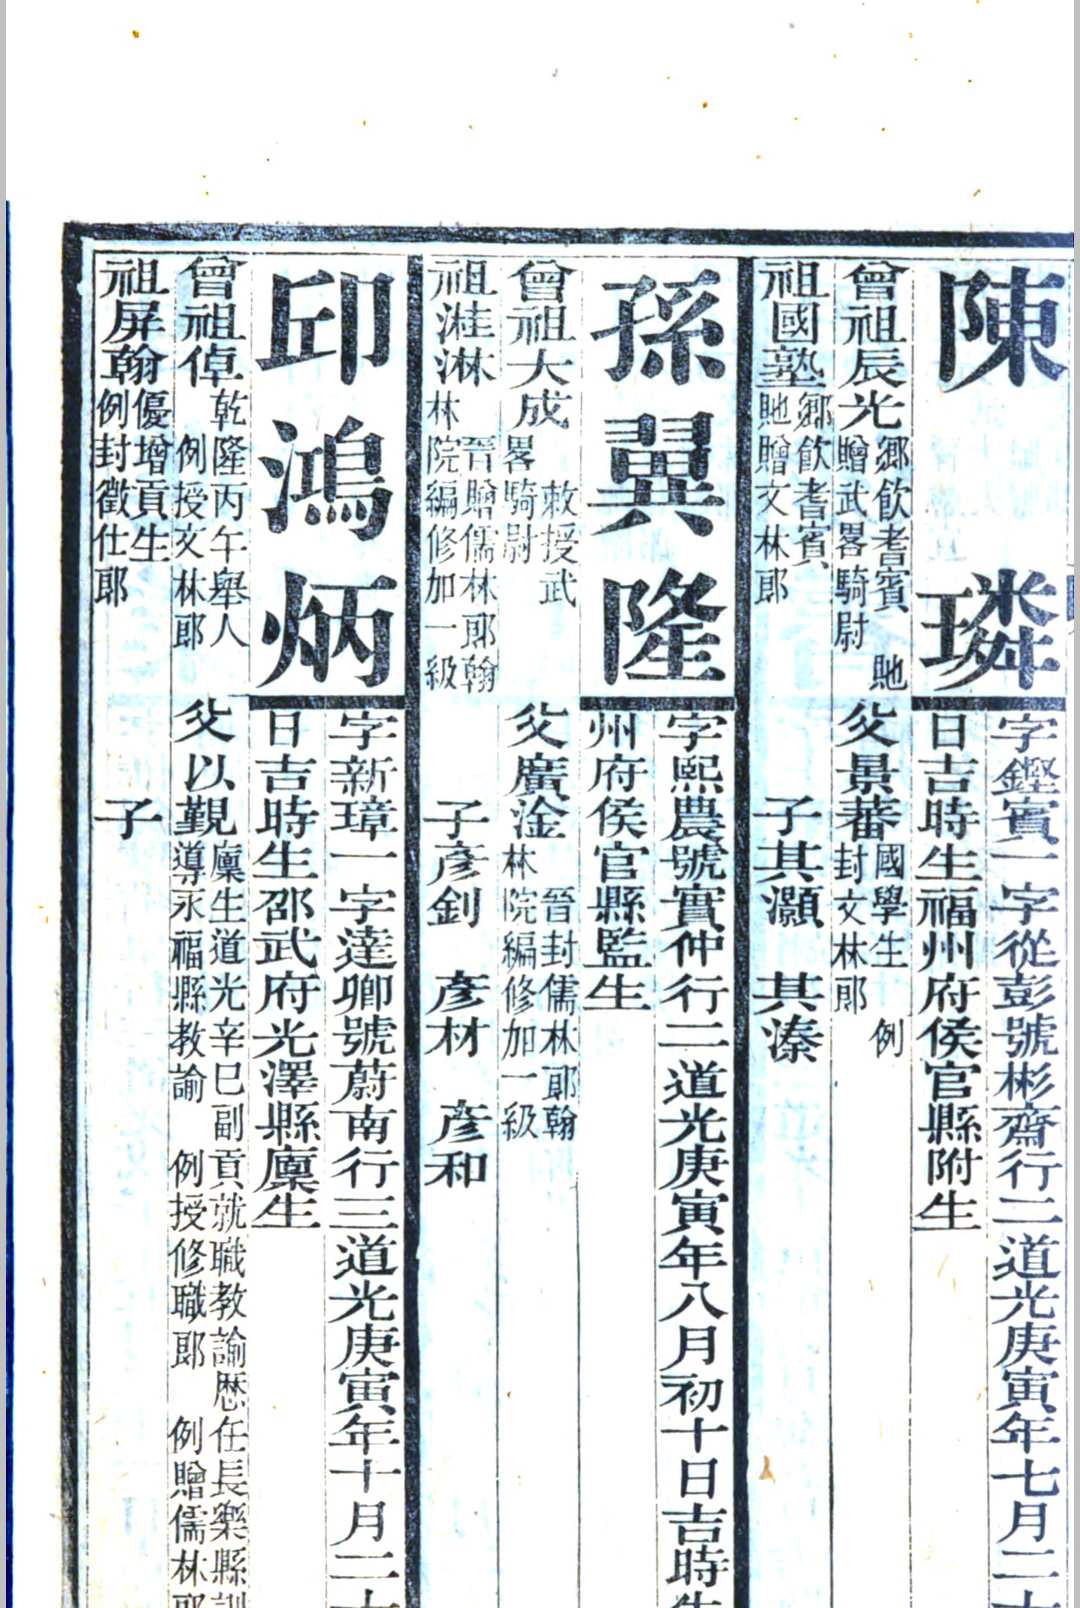 陳璘
字鏗賓一字從彭號彬齋行二道光庚寅年七月二十
日吉時生福州府侯官縣附生
曾祖辰光
鄉飲耆賓 貤
贈武畧騎尉
父景蕃
國學生 例
封文林郎
祖國塾
鄉飲耆賓
貤贈文林郎
子其灝 其溱
孫翼隆
字熙農號實仲行二道光庚寅年八月初十日吉時生
州府侯官縣監生
曾祖大成
敕授武
畧騎尉
父廣淦
晉封儒林郎翰
林院編修加一級
祖溎淋
晉贈儒林郎翰
林院編修加一級
子彥釗 彥材 彥和
邱鴻炳
字新璋一字達卿號蔚南行三道光庚寅年十月二十
日吉時生邵武府光澤縣廩生
曾祖倬
乾隆丙午舉人
例授文林郎
父以覲
廩生道光辛巳副貢就職教諭歷任長樂縣訓
導永福縣教諭 例授修職郎 例贈儒林郎
祖屏翰
優增貢生
例封徵仕郎
子